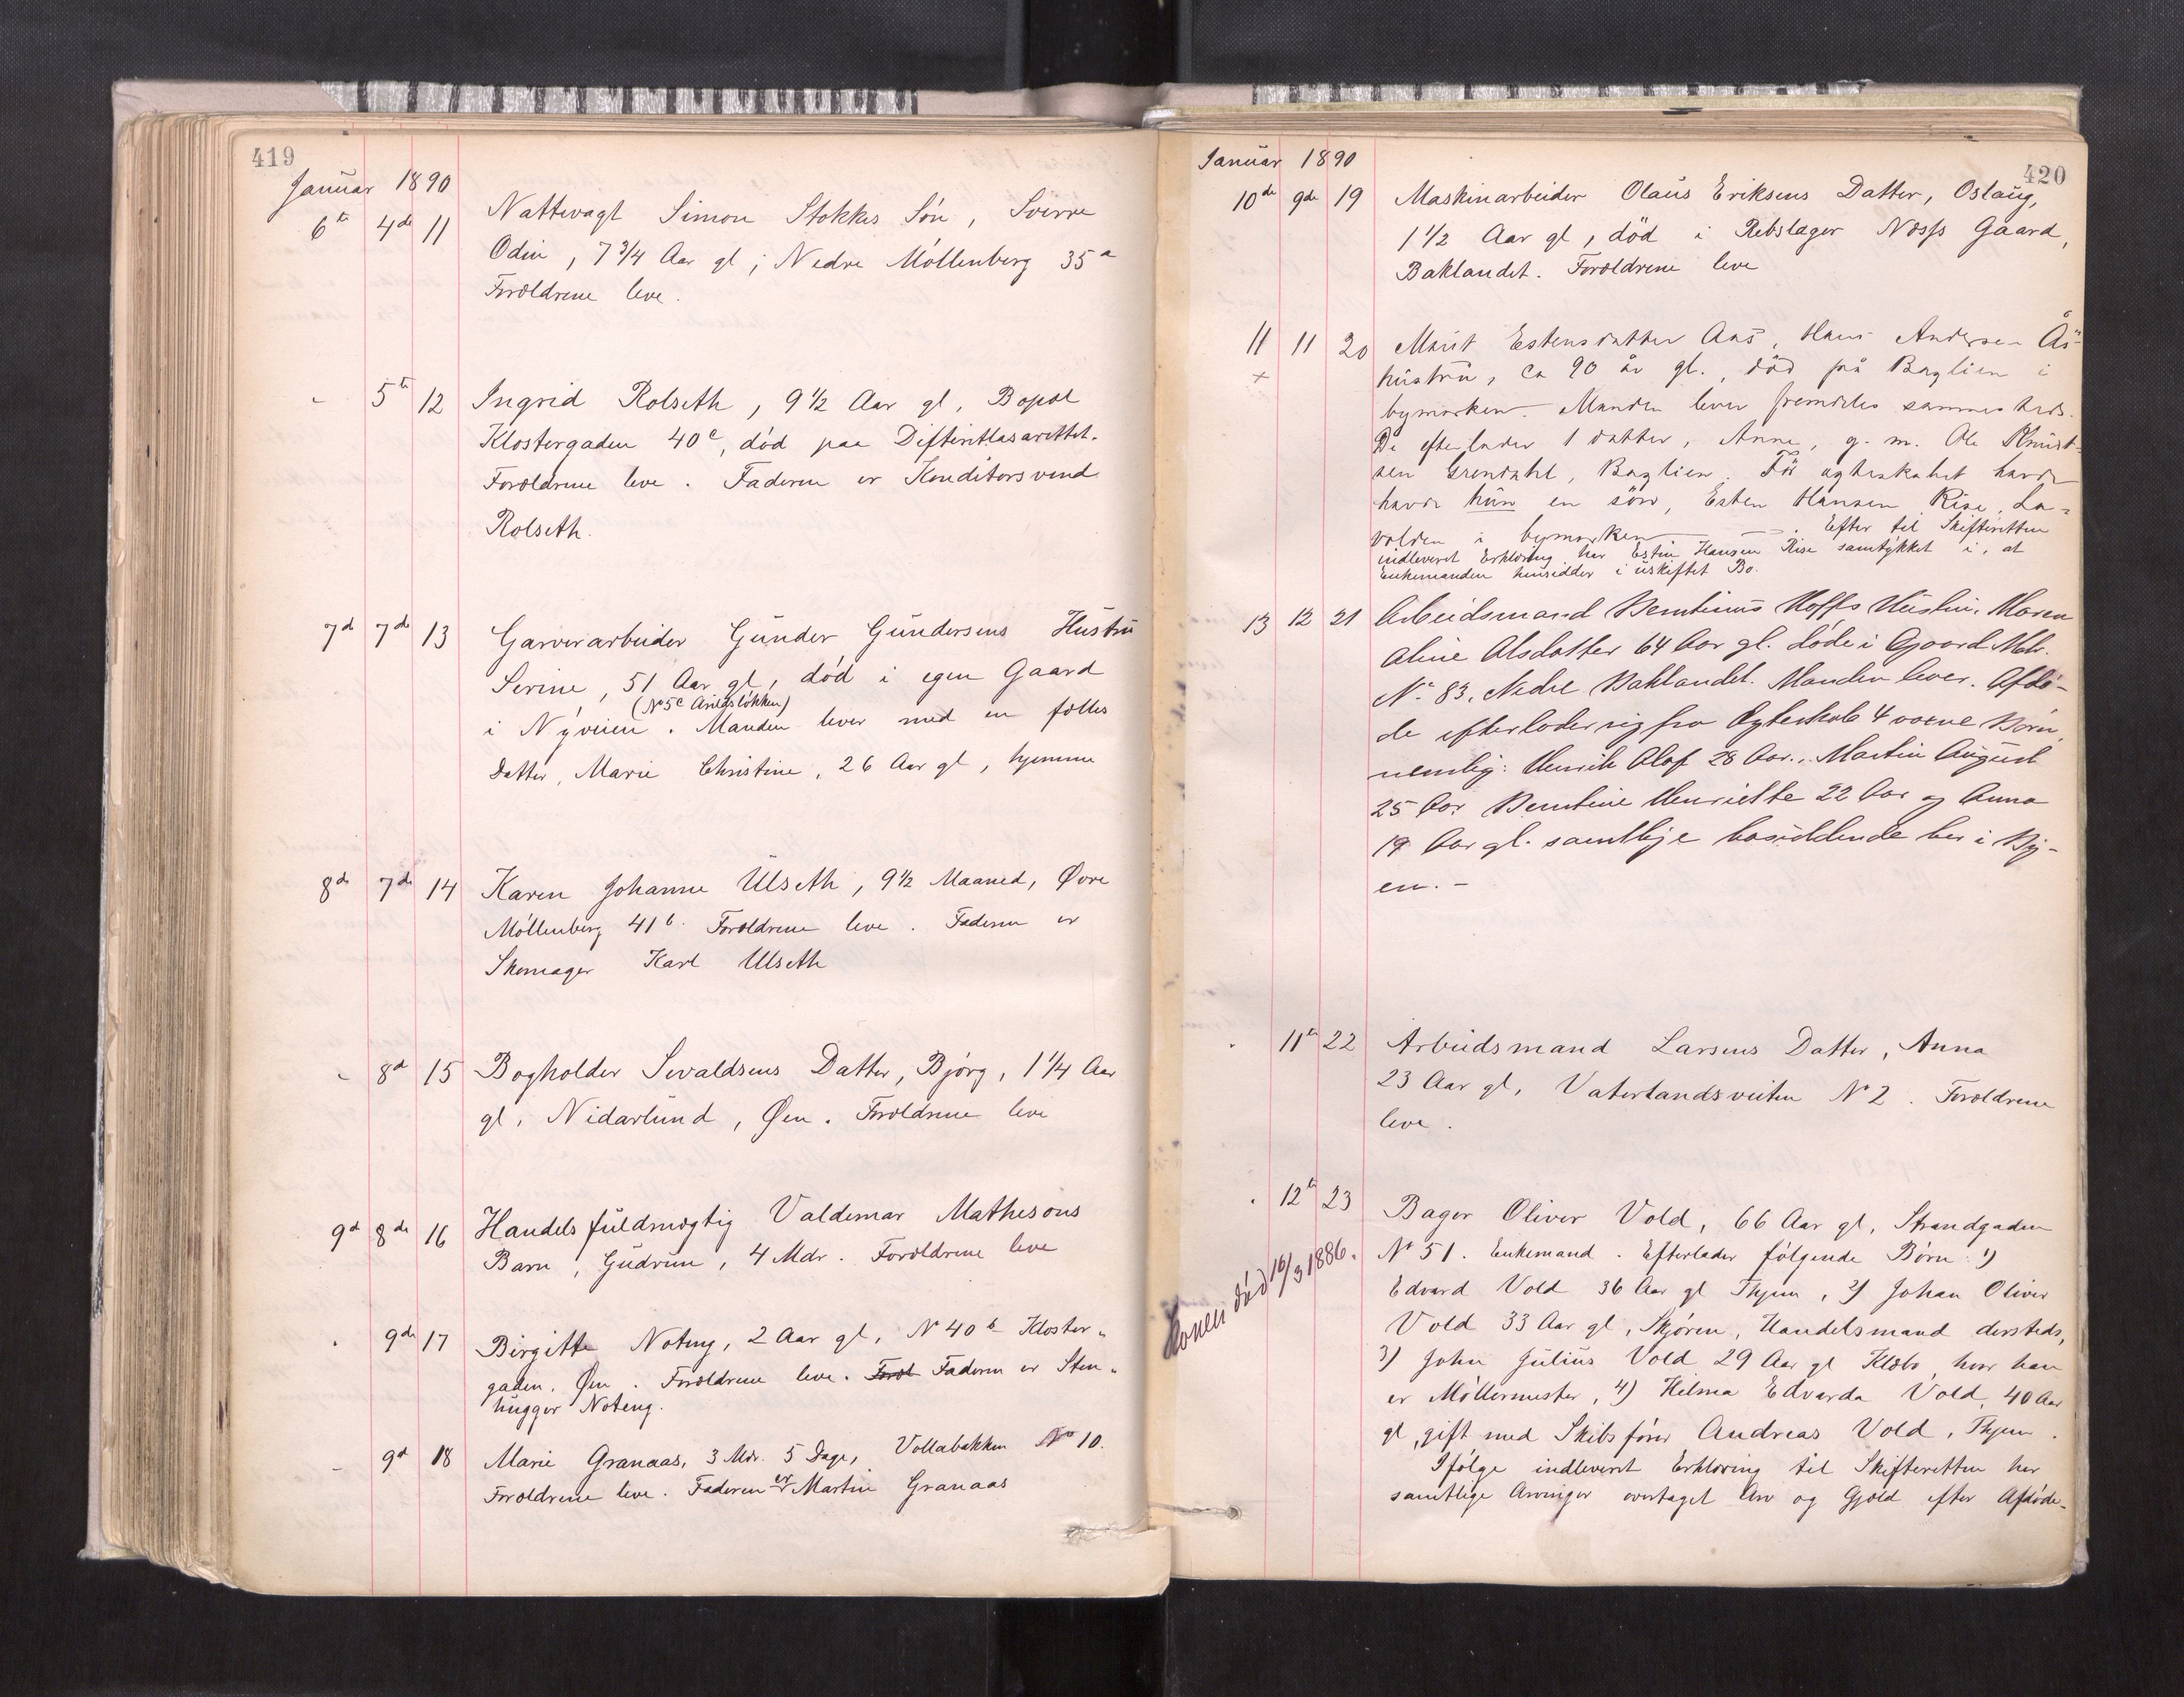 419
Januar 1890
6te 4de 11 Nattevagt Simon Stokkes Søn, Sverre
Odin, 7 3/4 Aar gl; Nedre Møllenberg 35a
Forældrene leve.
" 5te 12 Ingrid Rolseth, 9 1/2 Aar gl, Bopæl
Klostergaden 40c, død paa Difteritlasarettet.
Forældrene leve. Faderen er Konditorsvend
Rolseth.
7d 7de 13 Garverarbeider Gunder Gundersens Hustru
Serine, 51 Aar gl, død i egen Gaard
(No 5c Arildsløkken)
i Nyveien. Manden lever med en fælles
Datter, Marie Christine, 26 Aar gl, hjemme
8de 7de 14 Karen Johanne Ulseth, 9 1/2 Maaned, Øvre
Møllenberg 41b. Forældrene leve. Faderen er
Skomager Karl Ulseth
" 8d 15 Bogholder Sivaldsens Datter, Bjørg, 1 1/4 Aar
gl, Nidarlund, Øen. Forældrene leve
9d 8de 16 Handelsfuldmægtig Valdemar Mathesons
Barn, Gudrun, 4 Mdr. Forældrene leve
" 9de 17 Birgitte Noteng, 2 Aar gl, No 40b Kloster-
gaden, Øen. Forældrene leve. Foræl Faderen er Sten-
hugger Noteng.
- 9d 18 Marie Granaas, 3 Mdr. 5 Dage, Vollabakken No 10.
Forældrene leve. Faderen er Martin Granaas
420
Januar 1890
10de 9de 19 Maskinarbeider Olaus Eriksens Datter, Oslaug,
1 1/2 Aar gl, død i Rebslager Næss Gaard,
Baklandet. Forældrene leve
11 11 20 Marit Estensdatter Aas, Hans Andersen Ås'
+ hustru, ca 90 år gl., død på Baglien i
bymarken. Manden lever fremdeles sammesteds.
De efterlader 1 datter, Anne, g. m. Ole Knudt-
sen Grendahl, Baglien. Før ægteskabet havde
havde hun en søn, Esten Hansen Rise, La-
volden i bymarken. Efter til Skifteretten
indleveret Erklæring har Esten Hansen Rise samtykket i, at
Enkemanden hensidder i uskiftet Bo.
13 12 21 Arbeidsmand Berntinus Hoffs Hustru, Maren
Aline Olsdatter 64 Aar gl. døde i Gaard Mtr.
No 83, Nedre Baklandet. Manden lever. Afdø-
de efterlader sig fra Ægteskab 4 voxne Børn,
nemlig: Henrik Olaf 28 Aar., Martin August
25 Aar Berntine Henriette 22 Aar og Anna
19 Aar gl. samtlige bosiddende her i By-
en. -
" 11te 22 Arbeidsmand Larsens Datter, Anna
23 Aar gl, Vaterlandsveiten No 2. Forældrene
leve.
" 12te 23 Bager Oliver Vold, 66 Aar gl, Strandgaden
No 51. Enkemand. Efterlader følgende Børn: 1)
Konen død 16/3 1886.
Edvard Vold 36 Aar gl Thjem, 2) Johan Oliver
Vold 33 Aar gl, Skjøren, Handelsmand dersteds,
3) John Julius Vold 29 Aar gl Klæbo, hvor han
er Møllermester, 4) Hilma Edvarda Vold, 40 Aar
gl, gift med Skibsfører Andreas Vold, Thjem.
Ifølge indleveret Erklæring til Skifteretten har
samtlige Arvinger overtaget Arv og Gjæld efter Afdøde.